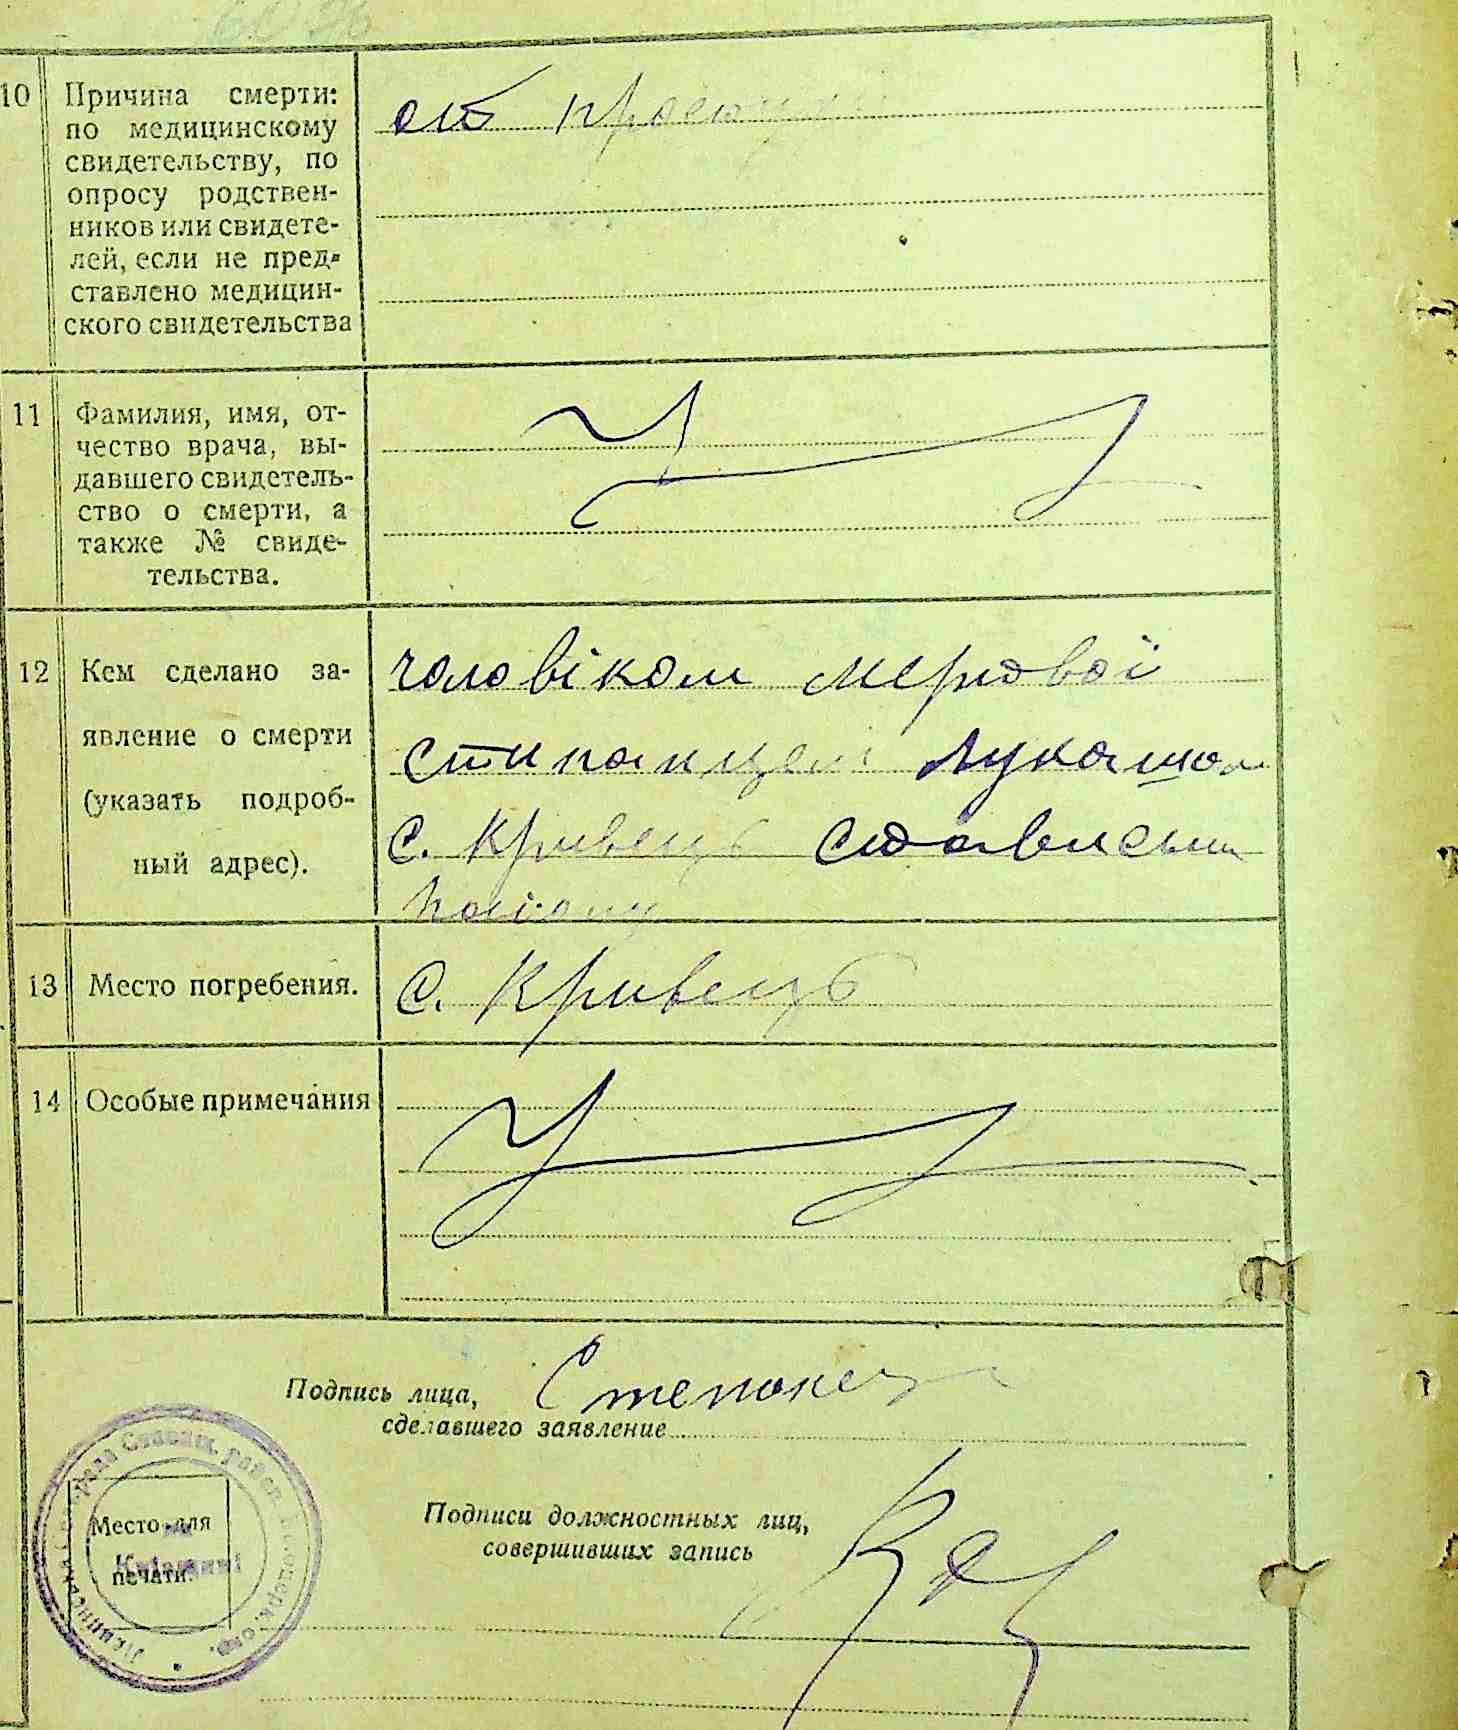 10 Причина смерти:
по медицинскому
свидетельству, по
опросу родствен-
ников или свидете-
лей, если не пред-
ставлено медицин-
ского свидетельства
от
11 Фамилия, имя, от-
чество врача, вы-
давшего свидетель-
ство о смерти, а
также № свиде-
тельства.
12 Кем сделано за-
явление о смерти
(указать подроб-
ный адрес).
чоловіком мертвої
Лукашом
с. Кривець
13 Место погребения.
с. Кривець
14 Особые примечания
Подпись лица,
сделавшего заявление
Подписи должностных лиц,
совершивших запись
Место для
печати.